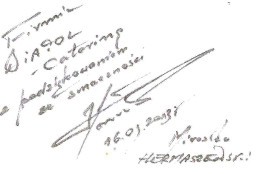 Firmie
DiAGOL
-Catering
z podziękowaniem
za smaczności
16.03.2013r
Mirosław
HERMASZEWSKI